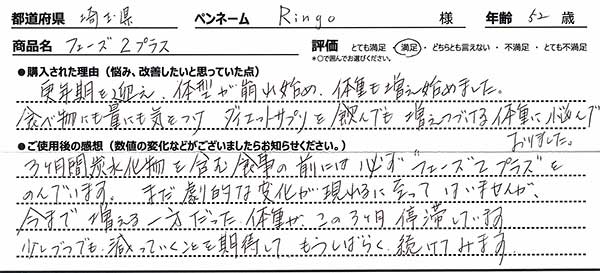 都道府県 埼玉県 ペンネーム Ringo 様 年齢 52 歳
商品名 フェーズ2プラス 評価 とても満足 ・ 満足 ・ どちらとも言えない ・ 不満足 ・ とても不満足
*○で囲んでお選びください。
●購入された理由（悩み、改善したいと思っていた点）
更年期を迎え、体型が崩れ始め、体重も増え始めました。
食べ物にも量にも気をつけ ダイエットサプリを飲んでも 増えつづける体重に悩んで
おりました。
●ご使用後の感想（数値の変化などがございましたらお知らせください。）
3ヶ月間炭水化物を含む食事の前には必ず"フェーズ2プラス"を
のんでいます。 まだ劇的な変化が現れるに至ってはいませんが、
今まで増える一方だった体重が、この3ヶ月停滞しています
少しづつでも減っていくことを期待して もうしばらく続けてみます。